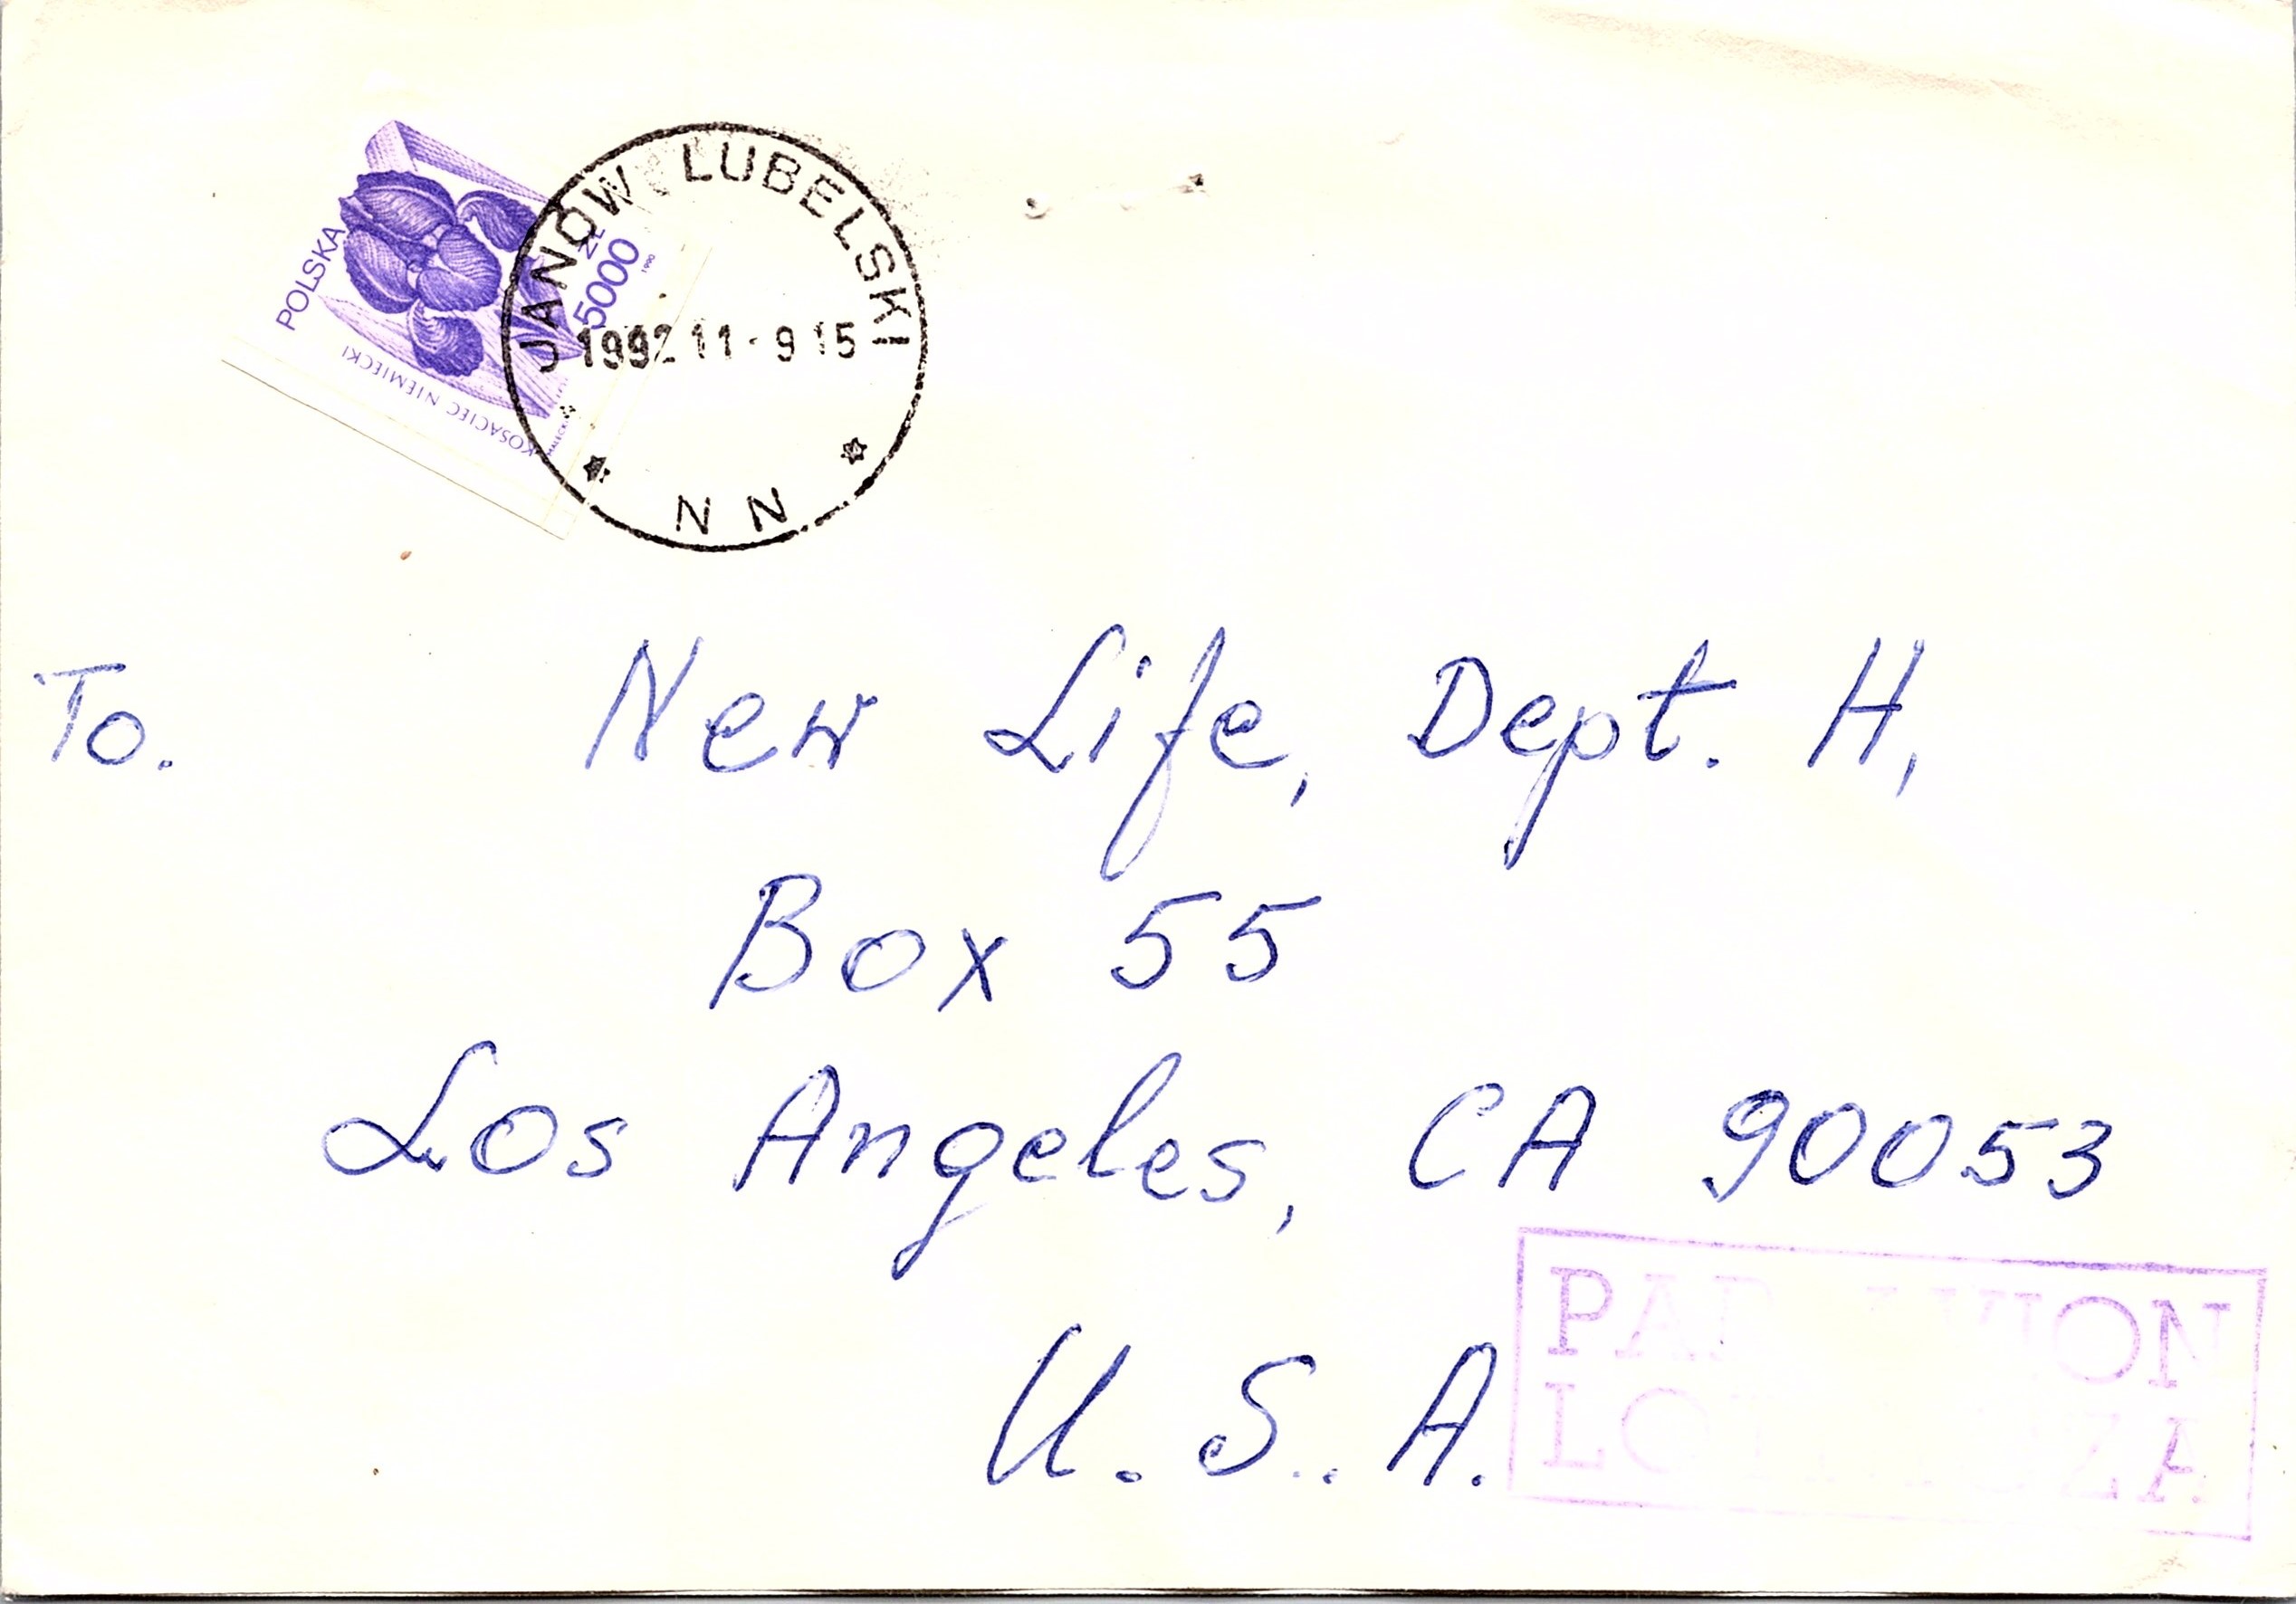 POLSKA
ZŁ
5000
1990
KOSACIEC NIEMIECKI
JANÓW LUBELSKI
1992 11 - 9 15
N N
To. New Life, Dept. H,
Box 55
Los Angeles, CA 90053
U. S. A.
PAR AVION
LOTNICZA